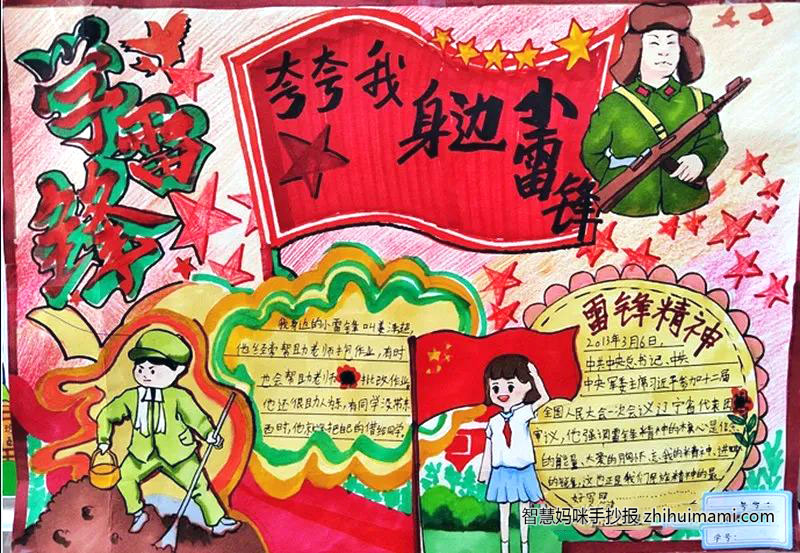 学雷锋
夸夸我
身边
小雷锋
我身边的小雷锋叫姜泽超,
他经常帮助老师扫作业,有时
也会帮助老师批改作业
他还很助人为乐,有同学没带东
西时,他就会把自己的借给同学。
雷锋精神
2013年3月6日,
中共中央总书记、中央
中央军委主席习近平参加十二届
全国人民大会一次会议辽宁省代表团
审议,他强调雷锋精神的核心是信念
的能量、大爱的胸怀、忘我的精神、进取
的锐气,这也正是我们民族精神的最
好写照
学号:
智慧妈咪手抄报 zhihuimami.com